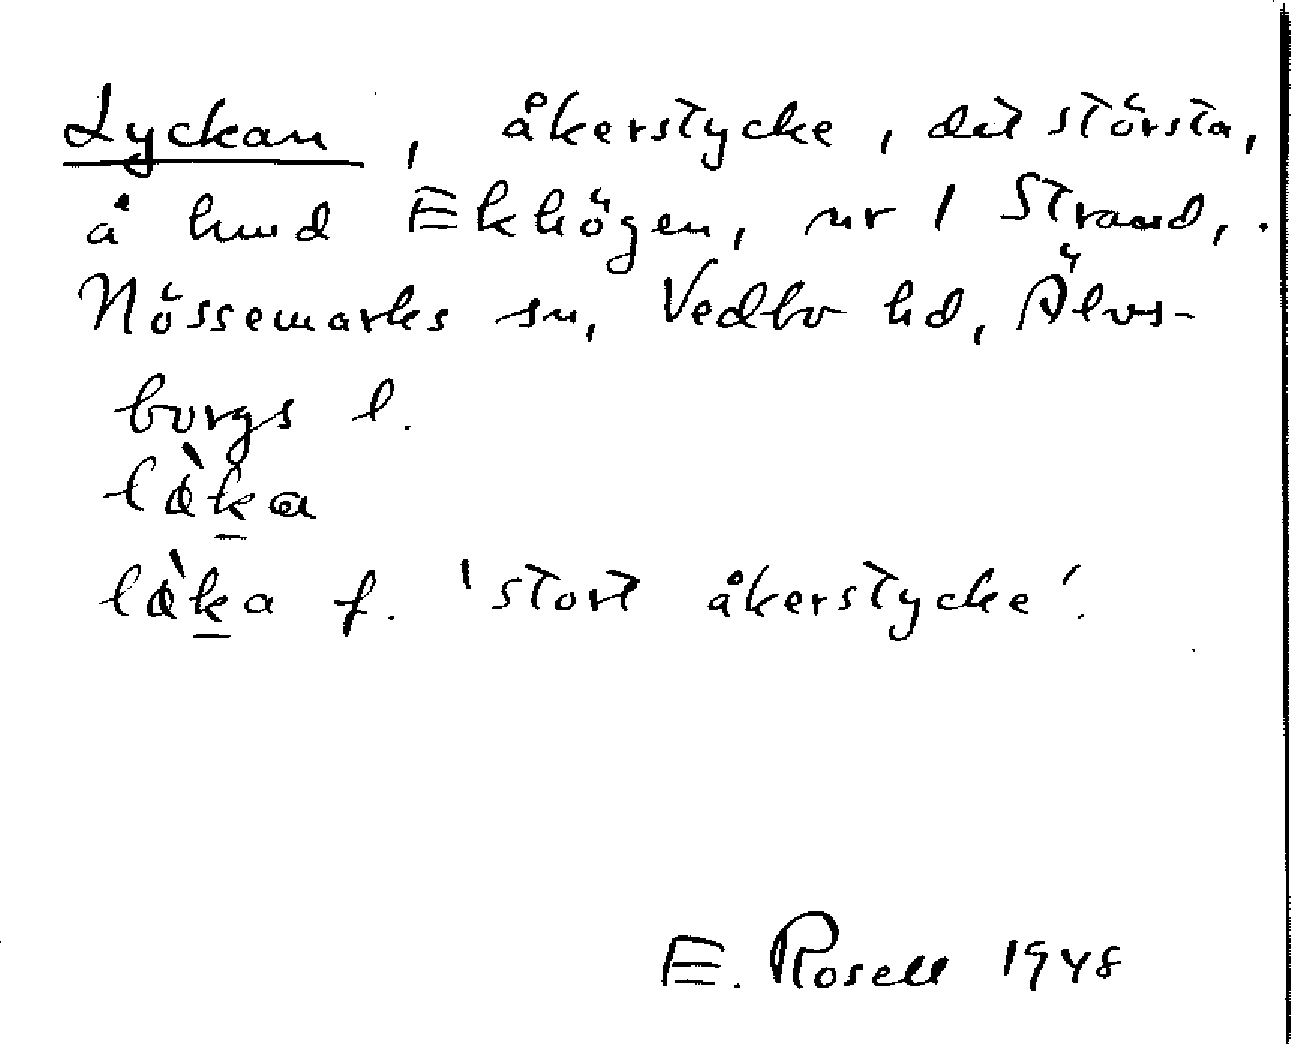 Lyckan, åkerstycke, det största,
å hmd Ekhögen, nr 1 Strand,
Nössemarks sn, Vedbo hd, Älvs-
borgs l.
lɑ̀k̲a
lɑ̀k̲a f. 'stort åkerstycke'.
E. Rosell 1948